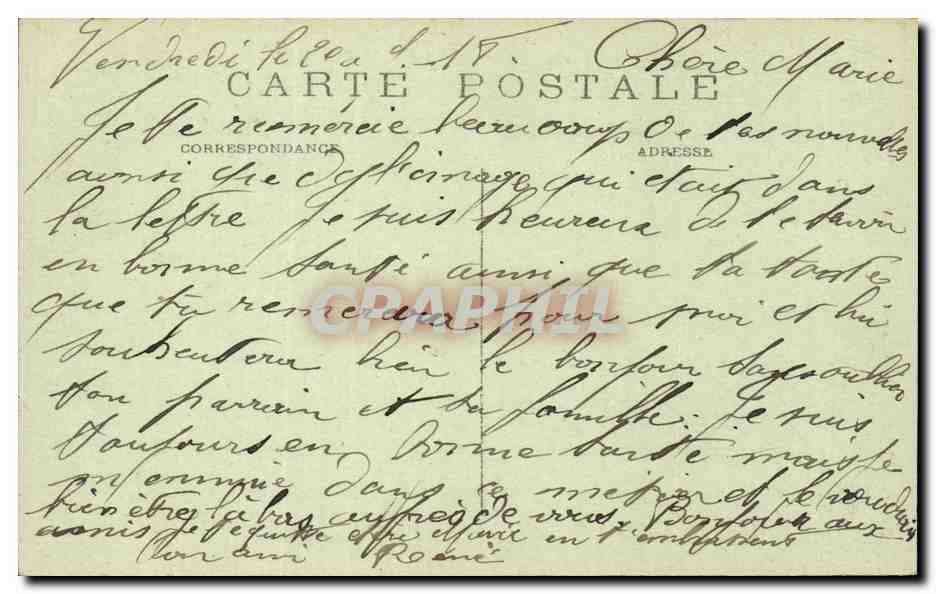 Vendredi le 20 18 Chère Marie
CARTE POSTALE
Je te remercie beaucoup de tes nouvelles
CORRESPONDANCE ADRESSE
ainsi que de l'image qui était dans
la lettre Je suis heureux de te savoir
en bonne santé ainsi que ta tante
que tu remerciera pour moi et lui
souhaitera bien le bonjour sans oublier
ton parrain et sa famille. Je suis
toujours en bonne santé mais je
m'ennuie dans ce et je voudrais
bien être là bas auprès de vous. Bonjour aux
amis je te quitte chère Marie en t'embrassant
ton ami René
CPAPHIL